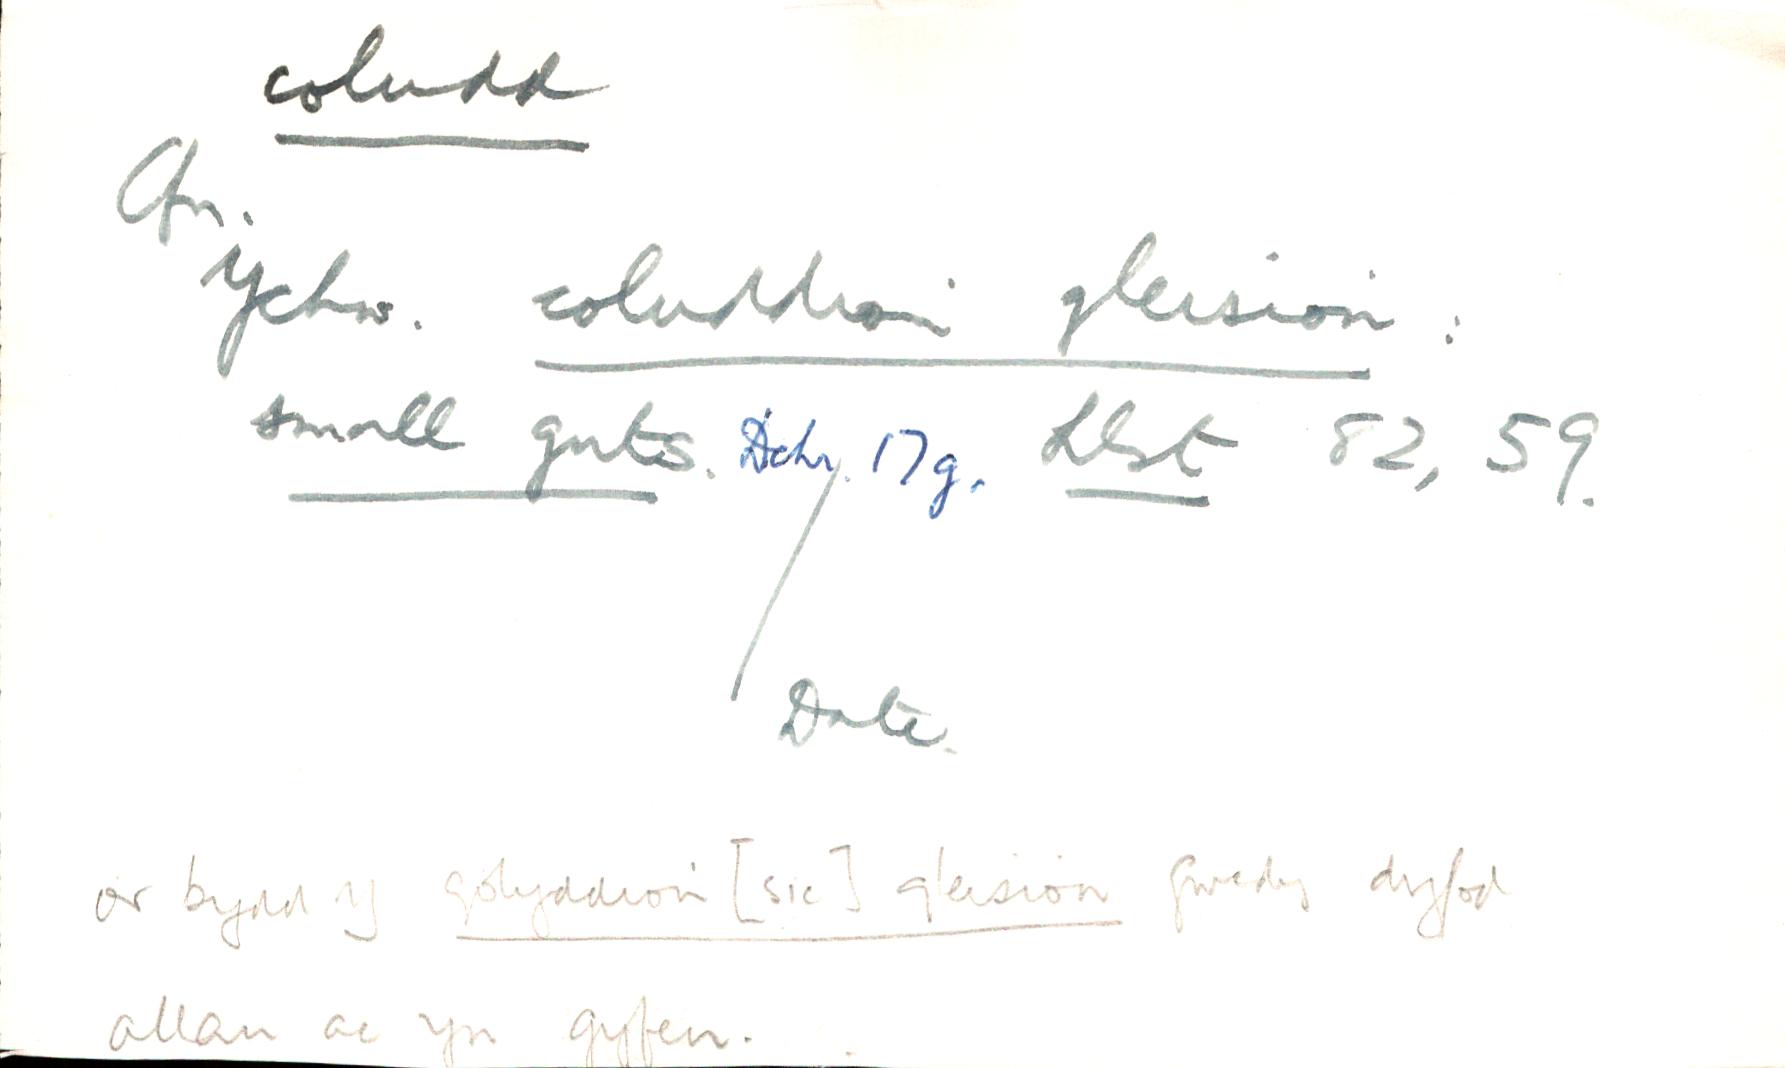 coludd
Cfn.
ychw. coluddion gleision:
small guts. Dchr. 17g. Llst 82, 59.
Date.
o'r bydd y golyddion [sic] gleision gwedy dyfod
allan ac yn gyfen.